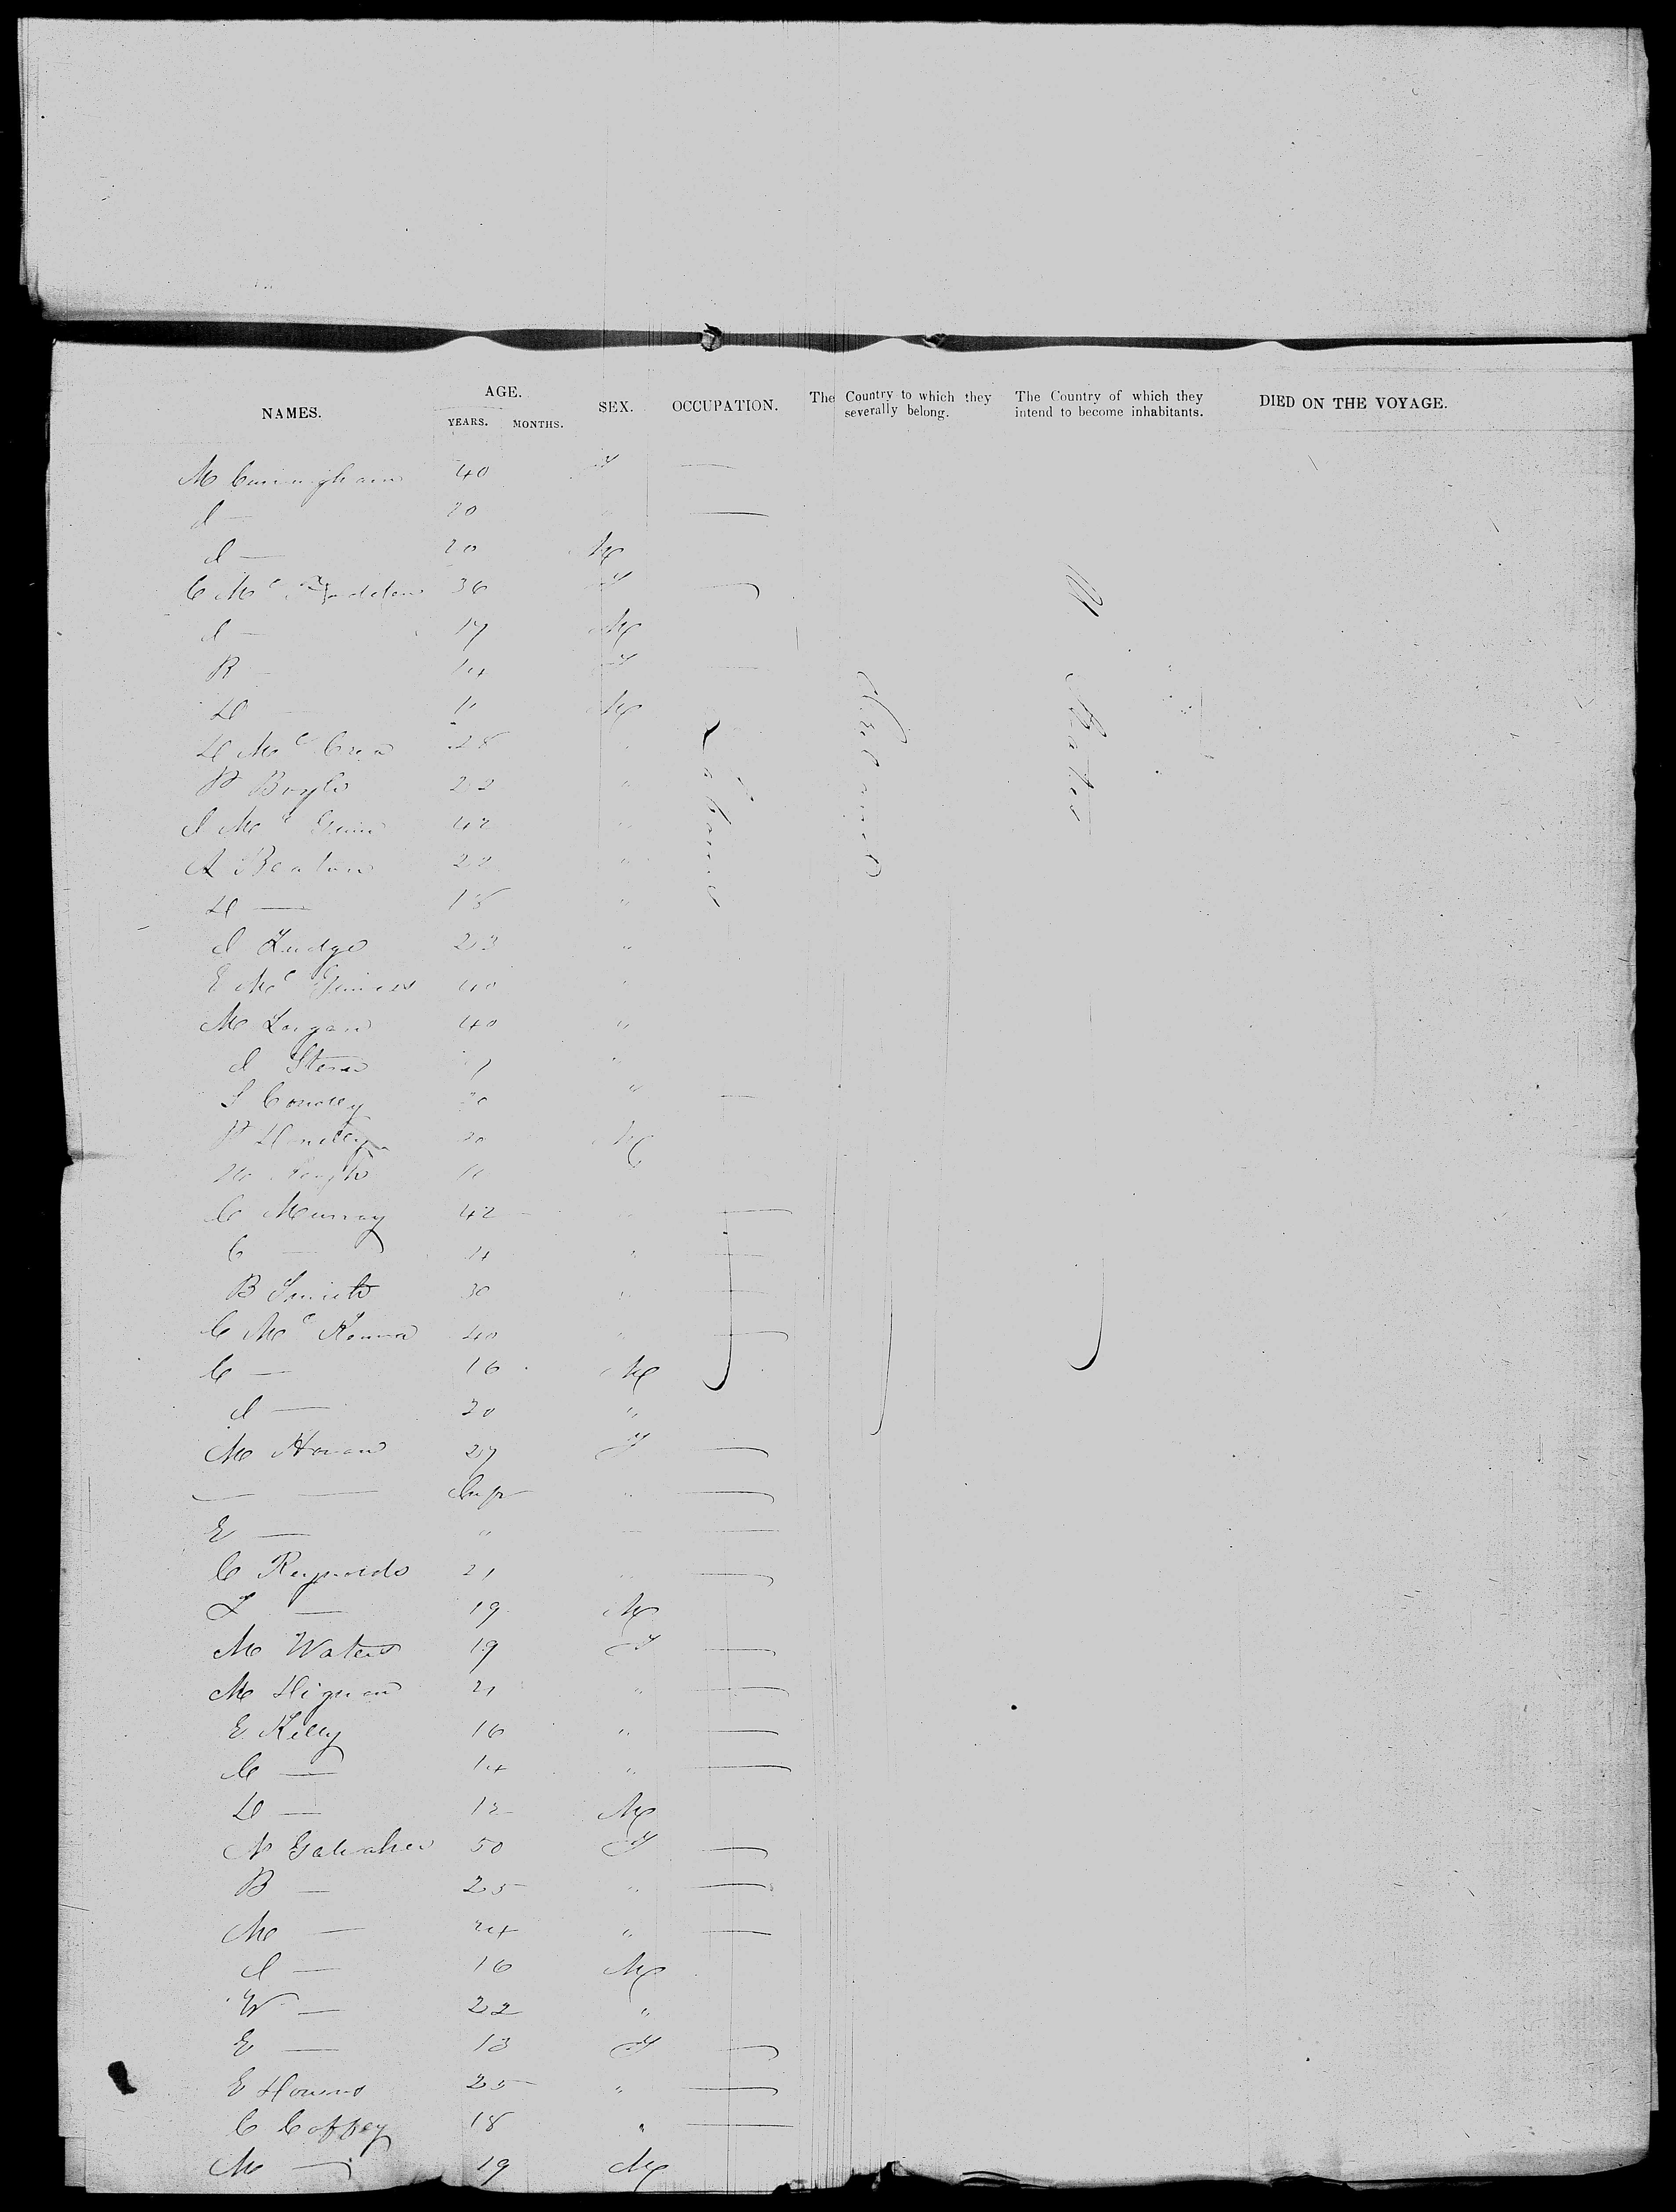 NAMES. AGE. YEARS. MONTHS. SEX. OCCUPATION. The Country to which they severally belong. The Country of which they intend to become inhabitants. DIED ON THE VOYAGE.
M Cunningham 40 F —
J — 20 " —
J — 20 M
C Mc 36 F —
J — 17 M
R — 14 F —
H — 11 M
H Mc Crea 28 "
P Boyle 22 "
J Mc Guin 42 "
A Beaton 22 "
H — 18 "
J Judge 23 "
E Mc Guiness 40 "
M Logan 40 "
J "
S Conolly 20 " —
P 20 M
C Murray 42 " —
C — 14 " —
B Smith 30 " —
C Mc Kenna 40 " —
C — 16 M
J — 20 "
M 27 F —
— — Inft " —
E — " — —
C Reynolds 21 " —
L — 19 M
M Waters 19 F —
M Dignan 21 " —
E Kelly 16 " —
C — 14 " —
D — 12 M
N Galraher 50 F —
B — 25 " —
M — 24 " —
J — 16 M
W — 22 "
E — 13 F —
E 25 " —
C Coffey 18 " —
M — 19 M
Labourer
Ireland
U States